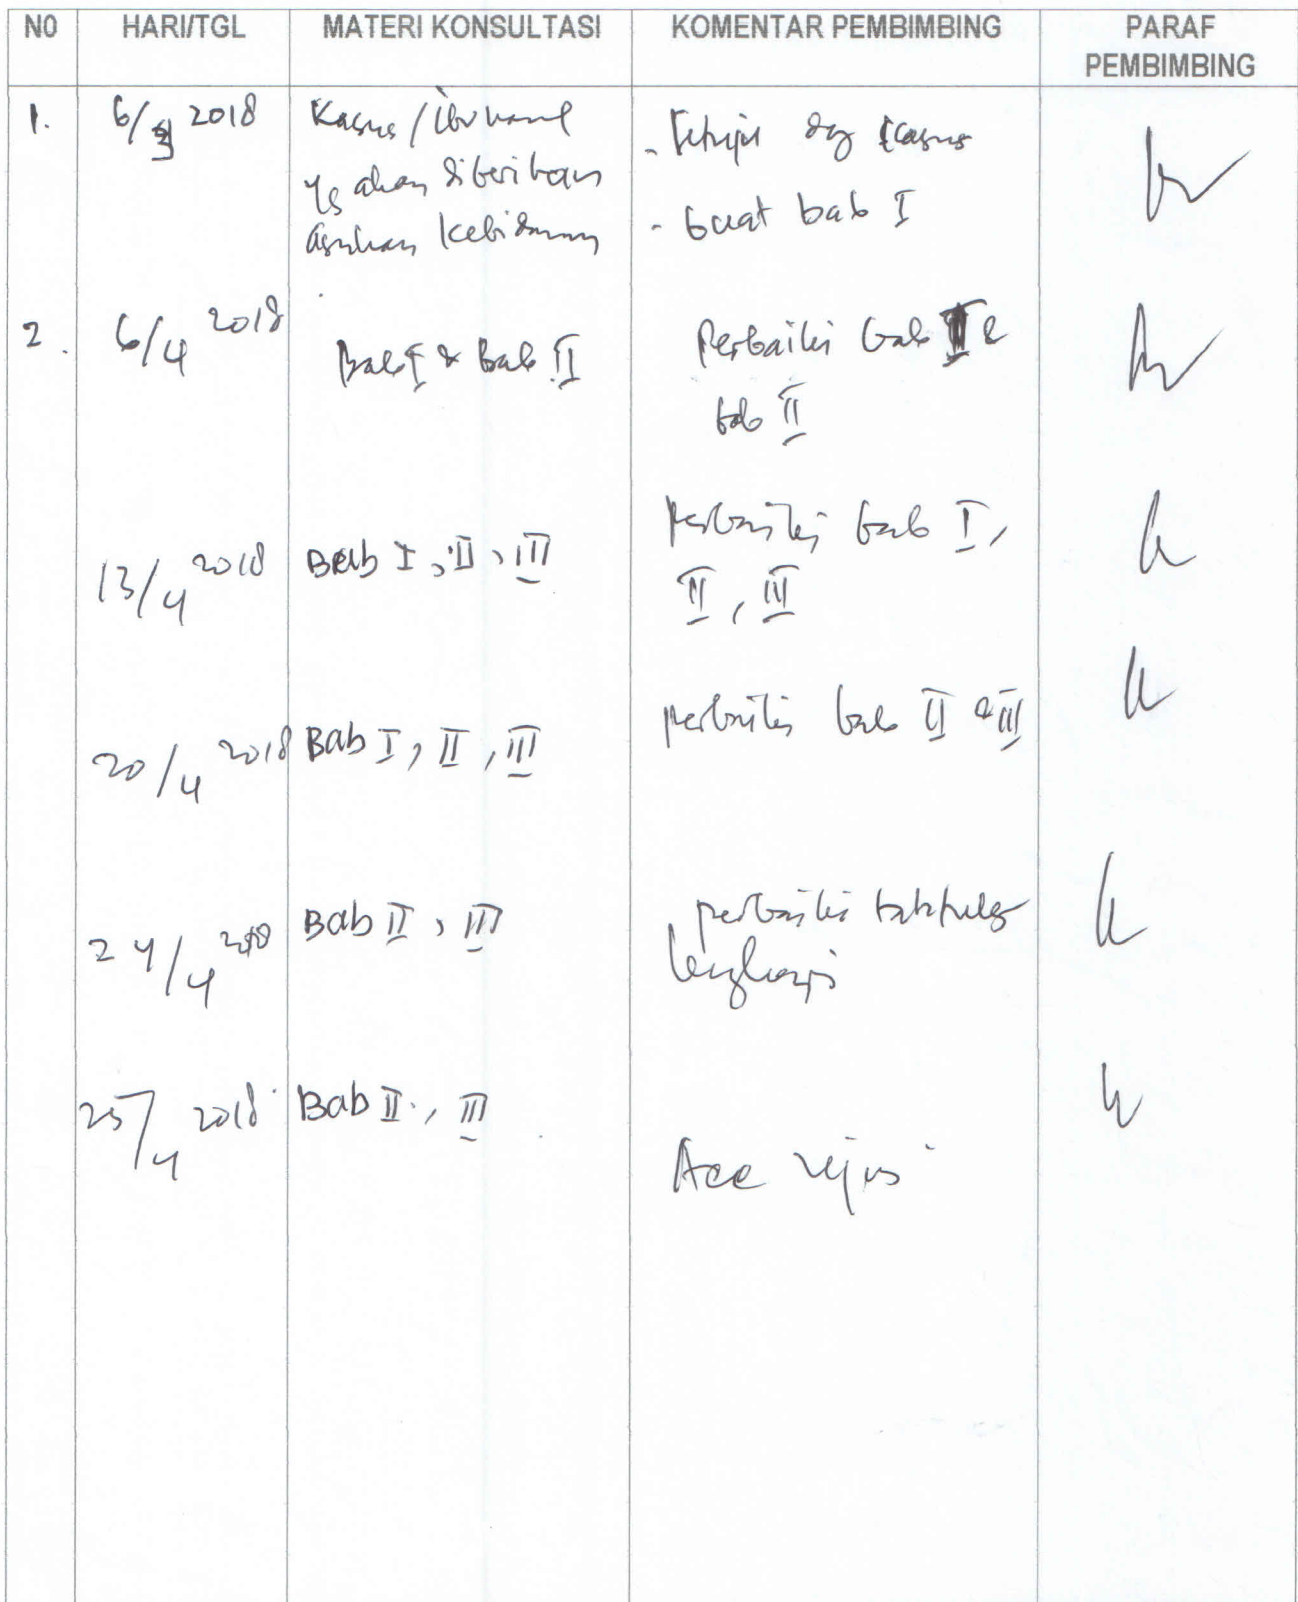 NO HARI/TGL MATERI KONSULTASI KOMENTAR PEMBIMBING PARAF
PEMBIMBING
1. 6/3 2018 Kasus / ibu hamil
yg akan diberikan
asuhan kebidanan
- dg kasus
- buat bab I
2. 6/4 2018 Bab I & bab II
Perbaiki bab I &
bab II
13/4 2018 Bab I, II, III
perbaiki bab I,
II, III
20/4 2018 Bab I, II, III perbaiki bab II & III
24/4 2018 Bab II, III perbaiki
lengkapi
25/4 2018 Bab II, III
Acc